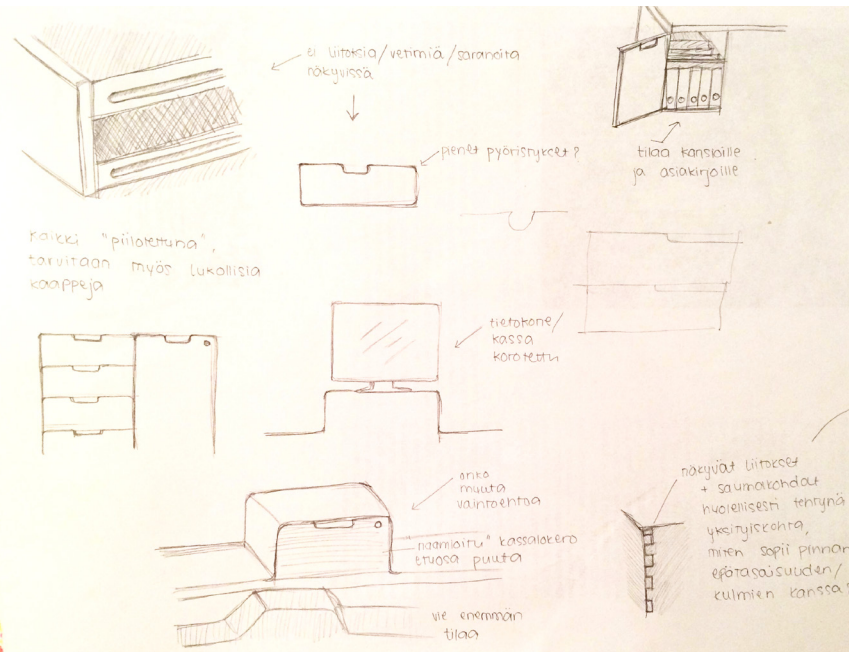 ei liitoksia/vetimiä/saranoita
näkyvissä
pienet pyöristykset?
tilaa kansioille
ja asiakirjoille
kaikki "piilotettuna",
tarvitaan myös lukollisia
kaappeja
tietokone/
kassa
korotettu
onko
muuta
vaihtoehtoa
"naamioitu" kassalokero
etuosa puuta
vie enemmän
tilaa
näkyvät liitokset
+ saumakohdat
huolellisesti tehtynä
yksityiskohta,
miten sopii pinnan
epätasaisuuden/
kulmien kanssa